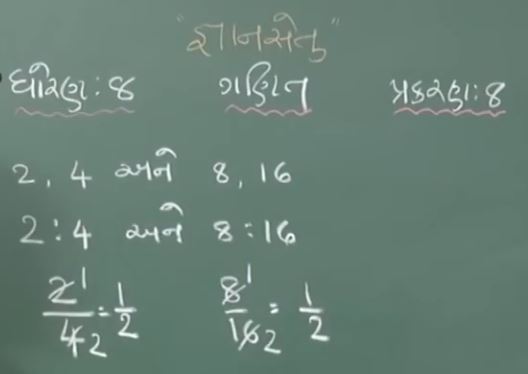 "જ્ઞાનસેતુ"
ધોરણ : ૪ ગણિત પ્રકરણ : ૪
2, 4 અને 8, 16
2 : 4 અને 8 : 16
2 1 / 4 2 = 1/2 8 1 / 16 2 = 1/2